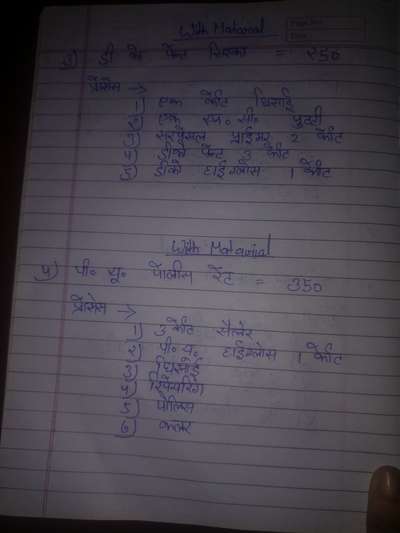 With Matarial
3) डी के पेन्ट सिक्का = २50
प्रोसेस →
1) एक कोट घिसाई
2) एक एन॰ सी॰ पुटटी
3) सरफेसल प्राईमर 2 कोट
4) डीको पेन्ट 3 कोट
5) डीको हाईग्लोस 1 कोट
With Matarial
4) पी॰ यू॰ पोलीस रेट = 350
प्रोसेस →
1) 3 कोट सैलेर
2) पी॰ यू॰ हाईग्लोस 1 कोट
3) घिसाई
4) रिपेयरिंग
5) पोलिस
6) कलर